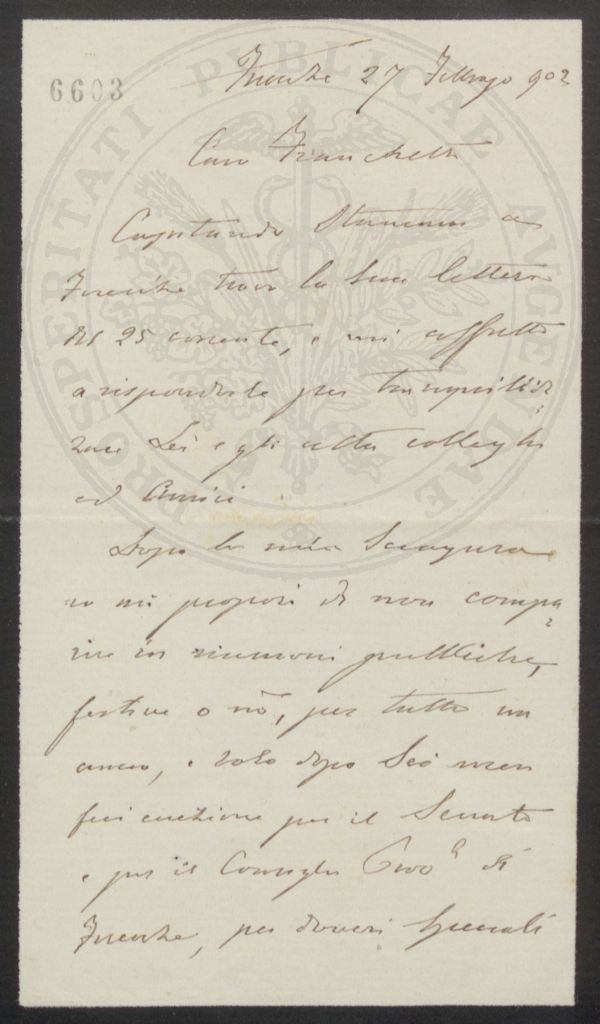 6603
Firenze 27 Febbraio 902
Caro Franchetti
Capitando stamani a
Firenze trovo la sua lettera
del 25 corrente, e mi affretto
a risponderle per tranquiliz=
zare Lei e gli altri colleghi
ed amici
Dopo la mia sciagura
io mi proposi di non compa=
rire in riunioni pubbliche,
festive o nò, per tutto un
anno, e solo dopo sei mesi
feci eccezione per il Senato
e per il Consiglio Provle di
Firenze, per doveri speciali
PROSPERITATI PUBLICAE AUGENDAE